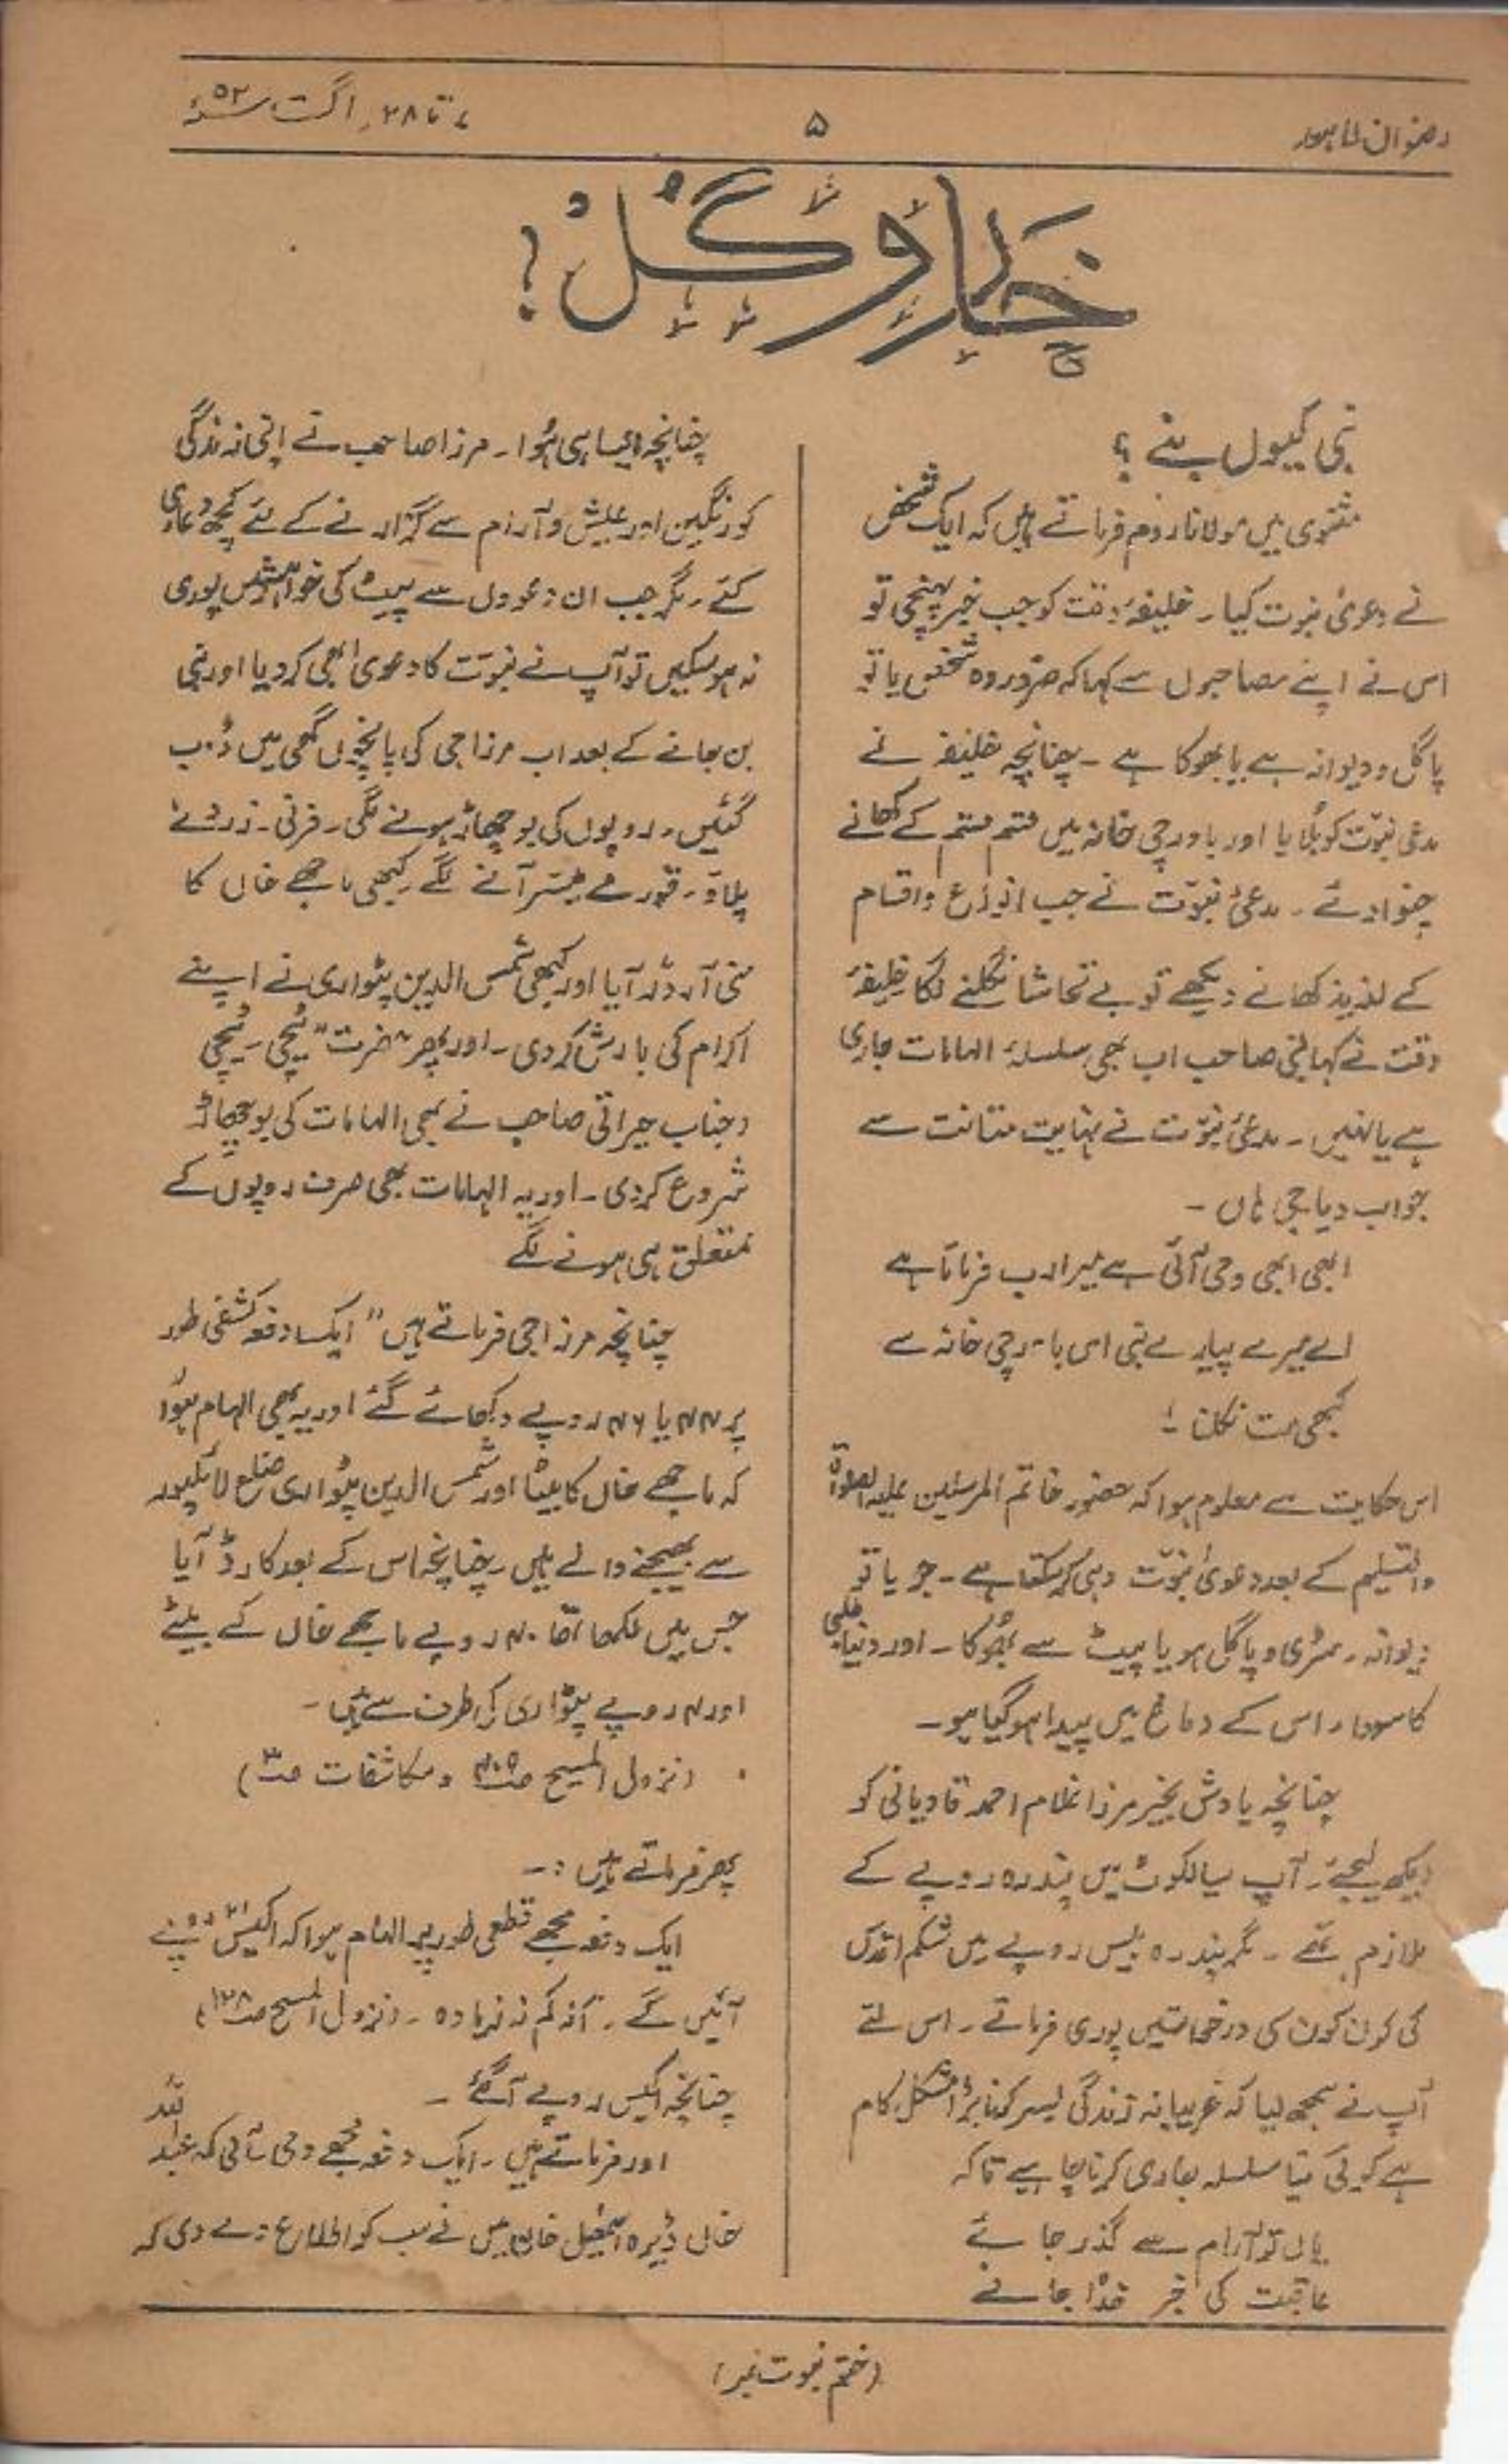 رضوان لاہور
۵
۷ تا ۲۸، اگست ۵۲ء
خار و گل!
نبی کیوں بنے ؟
مثنوی میں مولانا روم فرماتے ہیں کہ ایک شخص
نے دعوئ نبوت کیا۔ خلیفۂ وقت کو جب خبر پہنچی تو
اس نے اپنے مصاحبوں سے کہا کہ ضرور وہ شخص یا تو
پاگل و دیوانہ ہے یا بھوکا ہے ۔ چنانچہ خلیفہ نے
مدعی نبوّت کو بُلایا اور باورچی خانہ میں قسم قسم کے کھانے
چنوا دئے ۔ مدعئ نبوّت نے جب انواع و اقسام
کے لذیذ کھانے دیکھے تو بے تحاشا نگلنے لگا خلیفۂ
وقت نے کہا نبی صاحب اب بھی سلسلۂ الہامات جاری
ہے یا نہیں ۔ مدعئ نبوّت نے نہایت متانت سے
جواب دیا جی ہاں ۔
ابھی ابھی وحی آئی ہے میرا رب فرماتا ہے
اے میرے پیارے نبی اس باورچی خانہ سے
کبھی مت نکلنا !
اس حکایت سے معلوم ہوا کہ حضور خاتم المرسلین علیہ الصلوٰۃ
والتسلیم کے بعد دعوئ نبوّت وہی کر سکتا ہے ۔ جو یا تو
دیوانہ ۔ سڑی و پاگل ہو یا پیٹ سے بھُوکا ۔ اور دنیا طلبی
کا سودا اس کے دماغ میں پیدا ہو گیا ہو ۔
چنانچہ یادش بخیر مرزا غلام احمد قادیانی کو
دیکھ لیجئے ۔ آپ سیالکوٹ میں پندرہ روپے کے
ملازم تھے ۔ مگر پندرہ بیس روپے میں شکم اقدس
کی کون کون سی درخواستیں پوری فرماتے ۔ اس لئے
آپ نے سمجھ لیا کہ غریبانہ زندگی بسر کرنا بڑا مشکل کام
ہے کوئی نیا سلسلہ جاری کرنا چاہیے تاکہ
یاں تو آرام سے گذر جائے
عاقبت کی خبر خدا جانے
چنانچہ ایسا ہی ہُوا ۔ مرزا صاحب نے اپنی زندگی
کو رنگین اور عیش و آرام سے گزارنے کے لئے کچھ دعاوی
کئے ۔ مگر جب ان دعووں سے پیٹ کی خواہشیں پوری
نہ ہو سکیں تو آپ نے نبوّت کا دعویٰ بھی کر دیا اور نبی
بن جانے کے بعد اب مرزا جی کی پانچوں گھی میں ڈوب
گئیں ۔ روپوں کی بوچھاڑ ہونے لگی ۔ فرنی ۔ زردے
پلاؤ ۔ قورمے میسّر آنے لگے کبھی ماجھے خاں کا
منی آرڈر آیا اور کبھی شمس الدین پٹواری نے اپنے
اکرام کی بارش کر دی ۔ اور پھر حضرت "ٹیچی ۔ ٹیچی
و جناب خیراتی صاحب نے بھی الہامات کی بوچھاڑ
شروع کر دی ۔ اور یہ الہامات بھی صرف روپوں کے
متعلق ہی ہونے لگے
چنانچہ مرزا جی فرماتے ہیں " ایک دفعہ کشفی طور
پر ۴۴ یا ۴۶ روپے دکھائے گئے اور یہ بھی الہام ہوا
کہ ماجھے خاں کا بیٹا اور شمس الدین پٹواری ضلع لائلپور
سے بھیجنے والے ہیں ۔ چنانچہ اس کے بعد کارڈ آیا
جس میں لکھا تھا ۴۰ روپے ماجھے خاں کے بیٹے
اور ۴ روپے پٹواری کی طرف سے ہیں ۔
(نزول المسیح ص و مکاشفات ص)
پھر فرماتے ہیں :۔
ایک دفعہ مجھے قطعی طور پر الہام ہوا کہ اکیس ۲۱ روپے
آئیں گے ۔ نہ کم نہ زیادہ ۔ (نزول المسیح ص)
چنانچہ اکیس روپے آ گئے ۔
اور فرماتے ہیں ۔ ایک دفعہ مجھے وحی آئی کہ عبداللہ
خاں ڈیرہ اسمٰعیل خاں میں نے سب کو اطلاع دے دی کہ
(ختم نبوت نمبر)